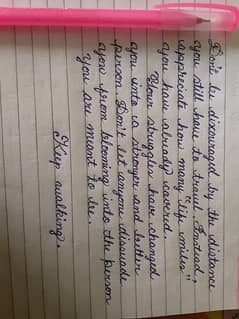 Don't be discouraged by the distance
you still have to travel. Instead,
appreciate how many "life miles"
you have already covered.
Your struggles have changed
you into a stronger and better
person. Don't let anyone dissuade
you from blooming into the person
you are meant to be.
Keep walking.